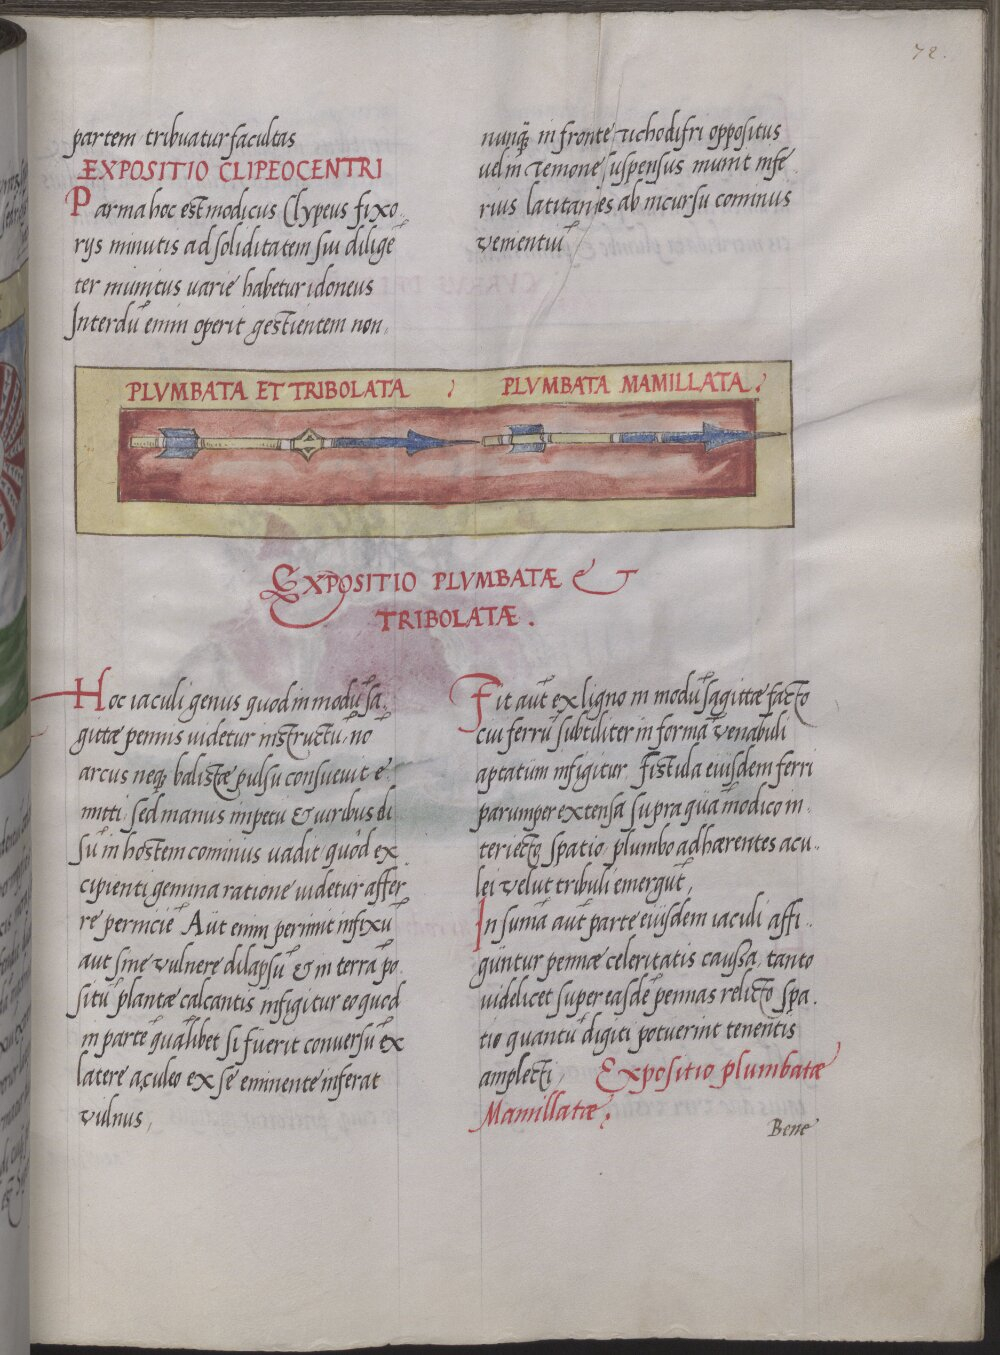 72.
partem tribuatur facultas
EXPOSITIO CLIPEOCENTRI
Parma hoc est modicus Clypeus fixo
rijs minutis ad soliditatem sui diligē
ter munitus varie habetur idoneus
Interdū enim operit gestientem non,
nunq̃ in fronte Tichodifri oppositus
vel in Temone suspensus munit infe
rius latitantes ab incursu cominus
venientiū
PLVMBATA ET TRIBOLATA
PLVMBATA MAMILLATA
EXPOSITIO PLVMBATÆ &
TRIBOLATÆ.
Hoc iaculi genus quod in modū sa,
gittæ pennis videtur instructū, nō
arcus neq; balistæ pulsu consuevit e
mitti, sed manus impetu & viribus eli
sū in hostem cominus vadit quod ex
cipienti gemina ratione videtur affer
re perniciē Aut enim perimit infixū
aut sine vulnere dilapsū & in terra po
sitū plantæ calcantis infigitur eo quod
in partē qualibet si fuerit conversū ex
latere aculeo ex se eminente inferat
vulnus,
Fit aūt ex ligno in modū sagittæ facto
cui ferrū subtiliter in formā venabuli
aptatum infigitur, fistula eiusdem ferri
parumper extensa supra quā modico in
teriecto spatio plumbo adhærentes acu..
lei velut tribuli emergūt,
In summā aūt parte eiusdem iaculi affi
guntur pennæ celeritatis caussa, tanto
videlicet super easdē pennas relicto spa.
tio quantū digiti potuerint tenentis
amplecti, Expositio plumbatæ
Mamillatæ
Bene